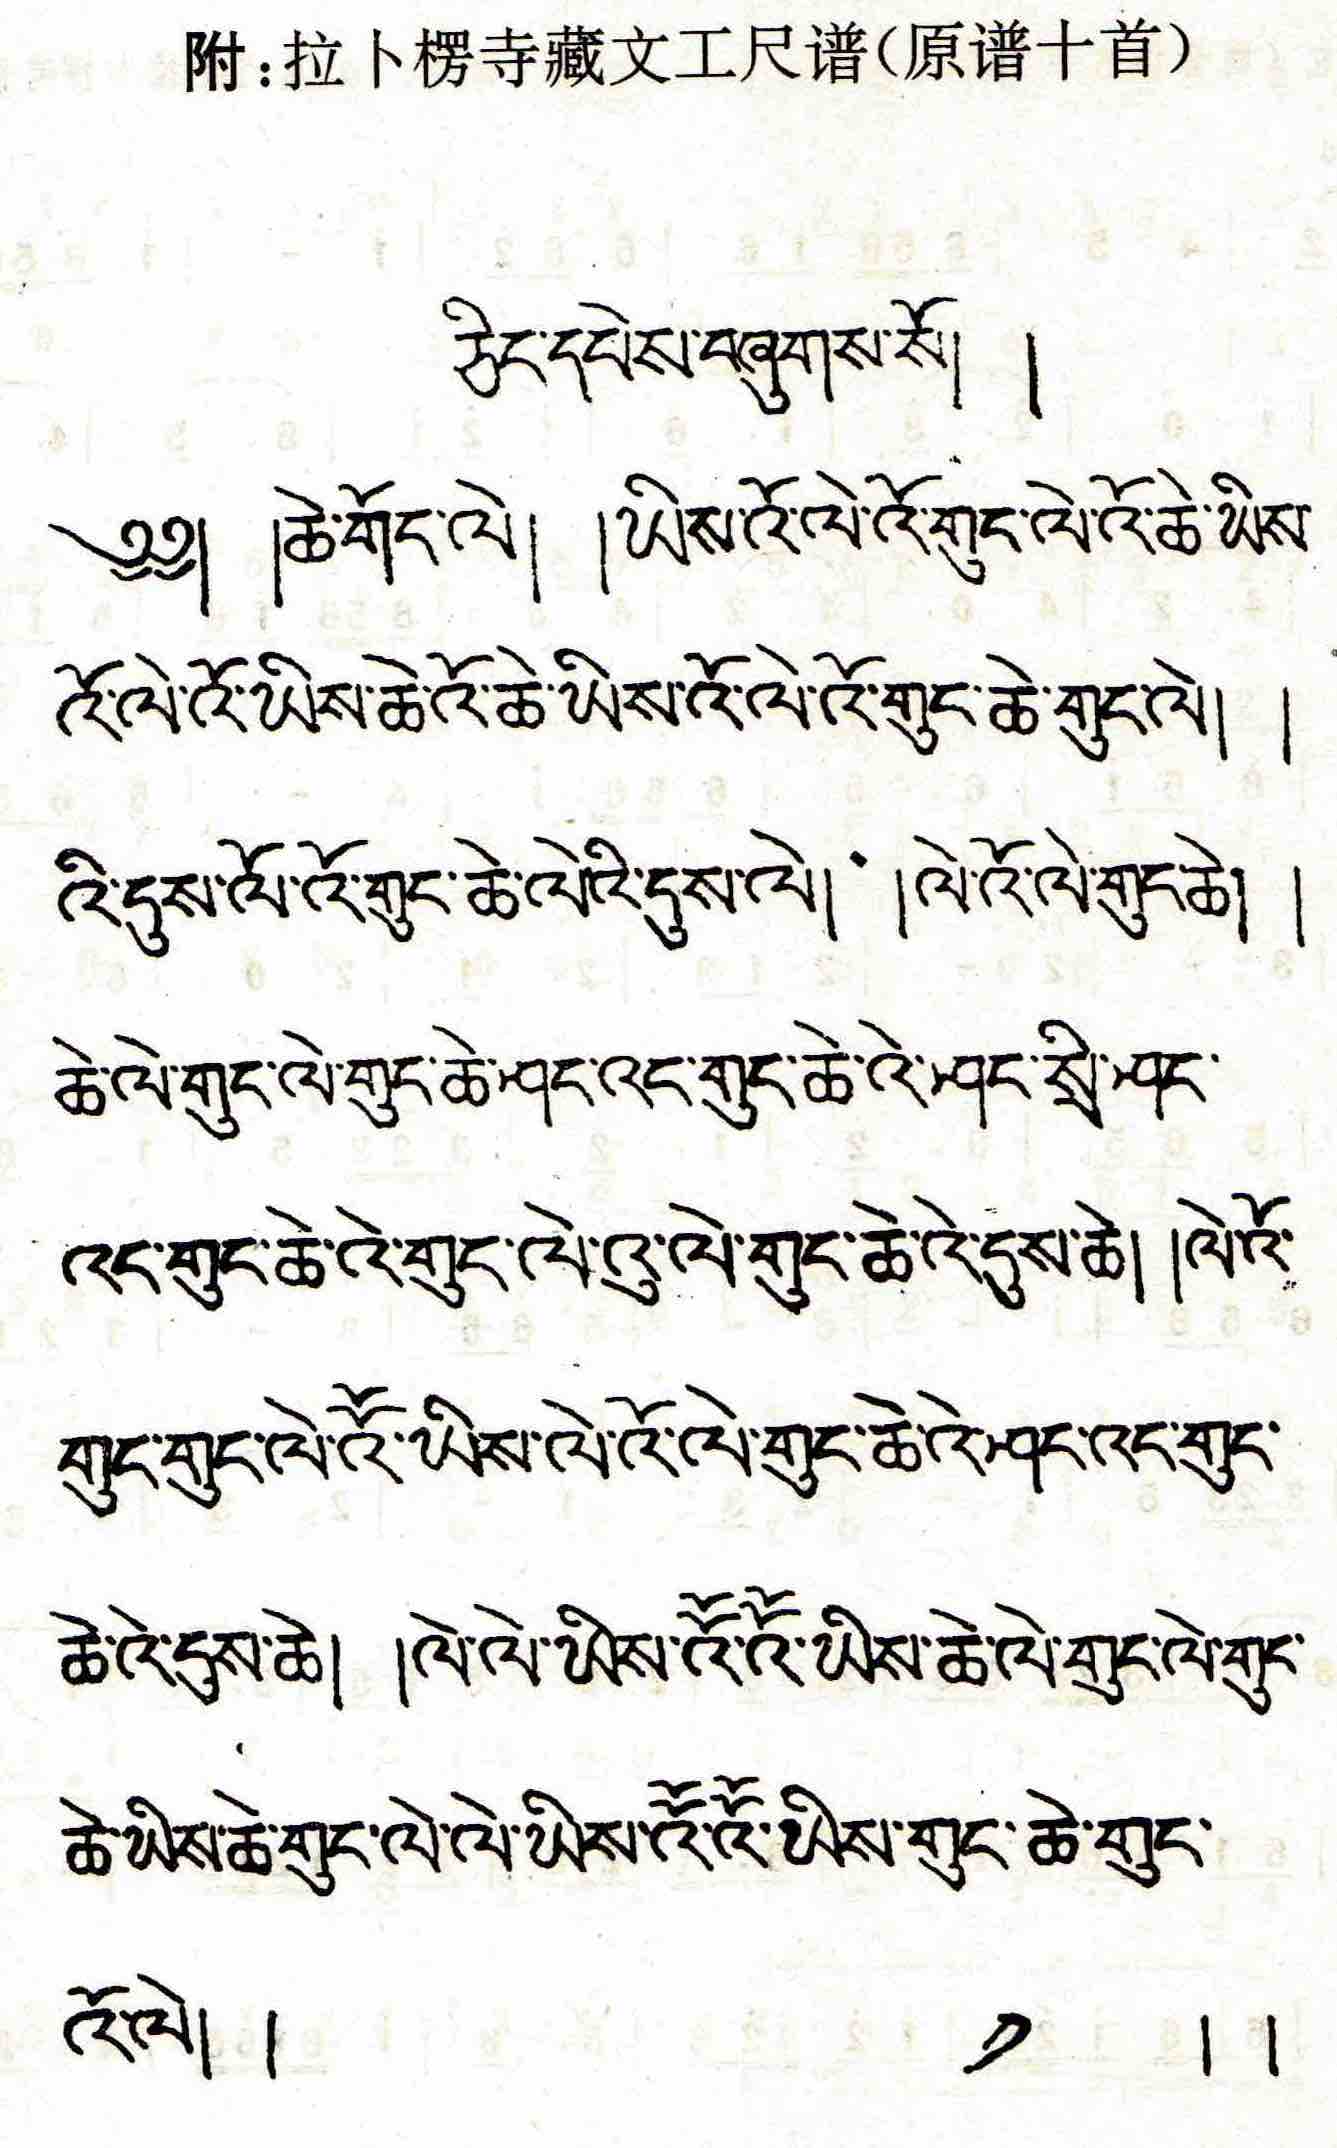 附：拉卜楞寺藏文工尺谱（原谱十首）
ཅིང་དཔེས་བཞུགས་སོ། །
༄༅། །ཆེ་གོང་ལེ། །ཡིས་རོ་ལེ་རོ་གུང་ལེ་རོ་ཆེ་ཡིས
རོ་ལེ་རོ་ཡིས་ཆེ་རོ་ཆེ་ཡིས་རོ་ལེ་རོ་གུང་ཆེ་གུང་ལེ། །
རི་དུས་ལོ་རོ་གུང་ཆེ་ལེ་རི་དུས་ལེ། །ལེ་རོ་ལེ་གུང་ཆེ། །
ཆེ་ལེ་གུང་ལེ་གུང་ཆེ་ཤང་རང་གུང་ཆེ་རེ་ཤང་སྲི་ཤང་
རང་གུང་ཆེ་རེ་གུང་ལེ་རུ་ལེ་གུང་ཆེ་རེ་དུས་ཆེ། །ལེ་རོ་
གུང་གུང་ལེ་རཽ་ཡིས་ལེ་རོ་ལེ་གུང་ཆེ་རེ་ཤང་རང་གུང་
ཆེ་རེ་དུས་ཆེ། །ལེ་ལེ་ཡིས་རཽ་རཽ་ཡིས་ཆེ་ལེ་གུང་ལེ་གུང་
ཆེ་ཡིས་ཆེ་གུང་ལེ་ལེ་ཡིས་རཽ་རཽ་ཡིས་གུང་ཆེ་གུང་
རོ་ལེ། ། ༡ །།